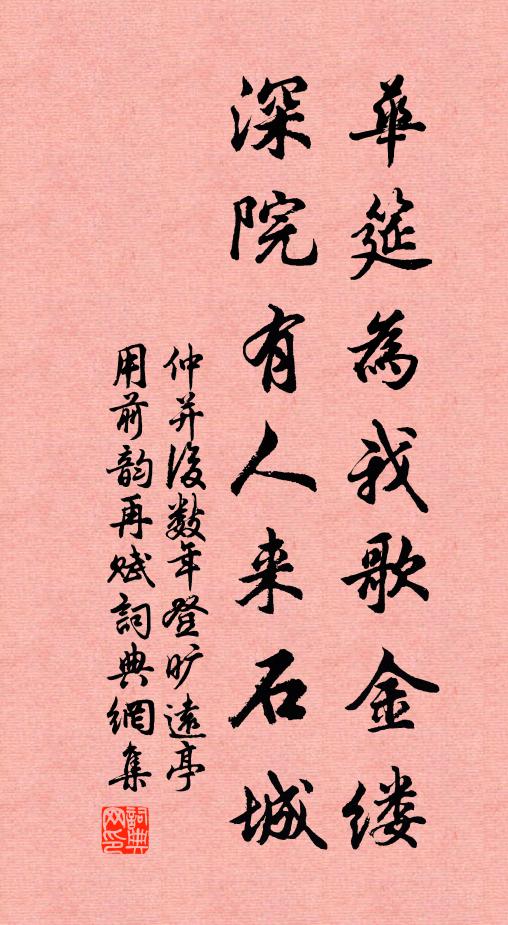 華筵為我歌金缕
深院有人来石城
仲并後数年登旷遠亭
用前韵再赋詞典網集
詞典網印